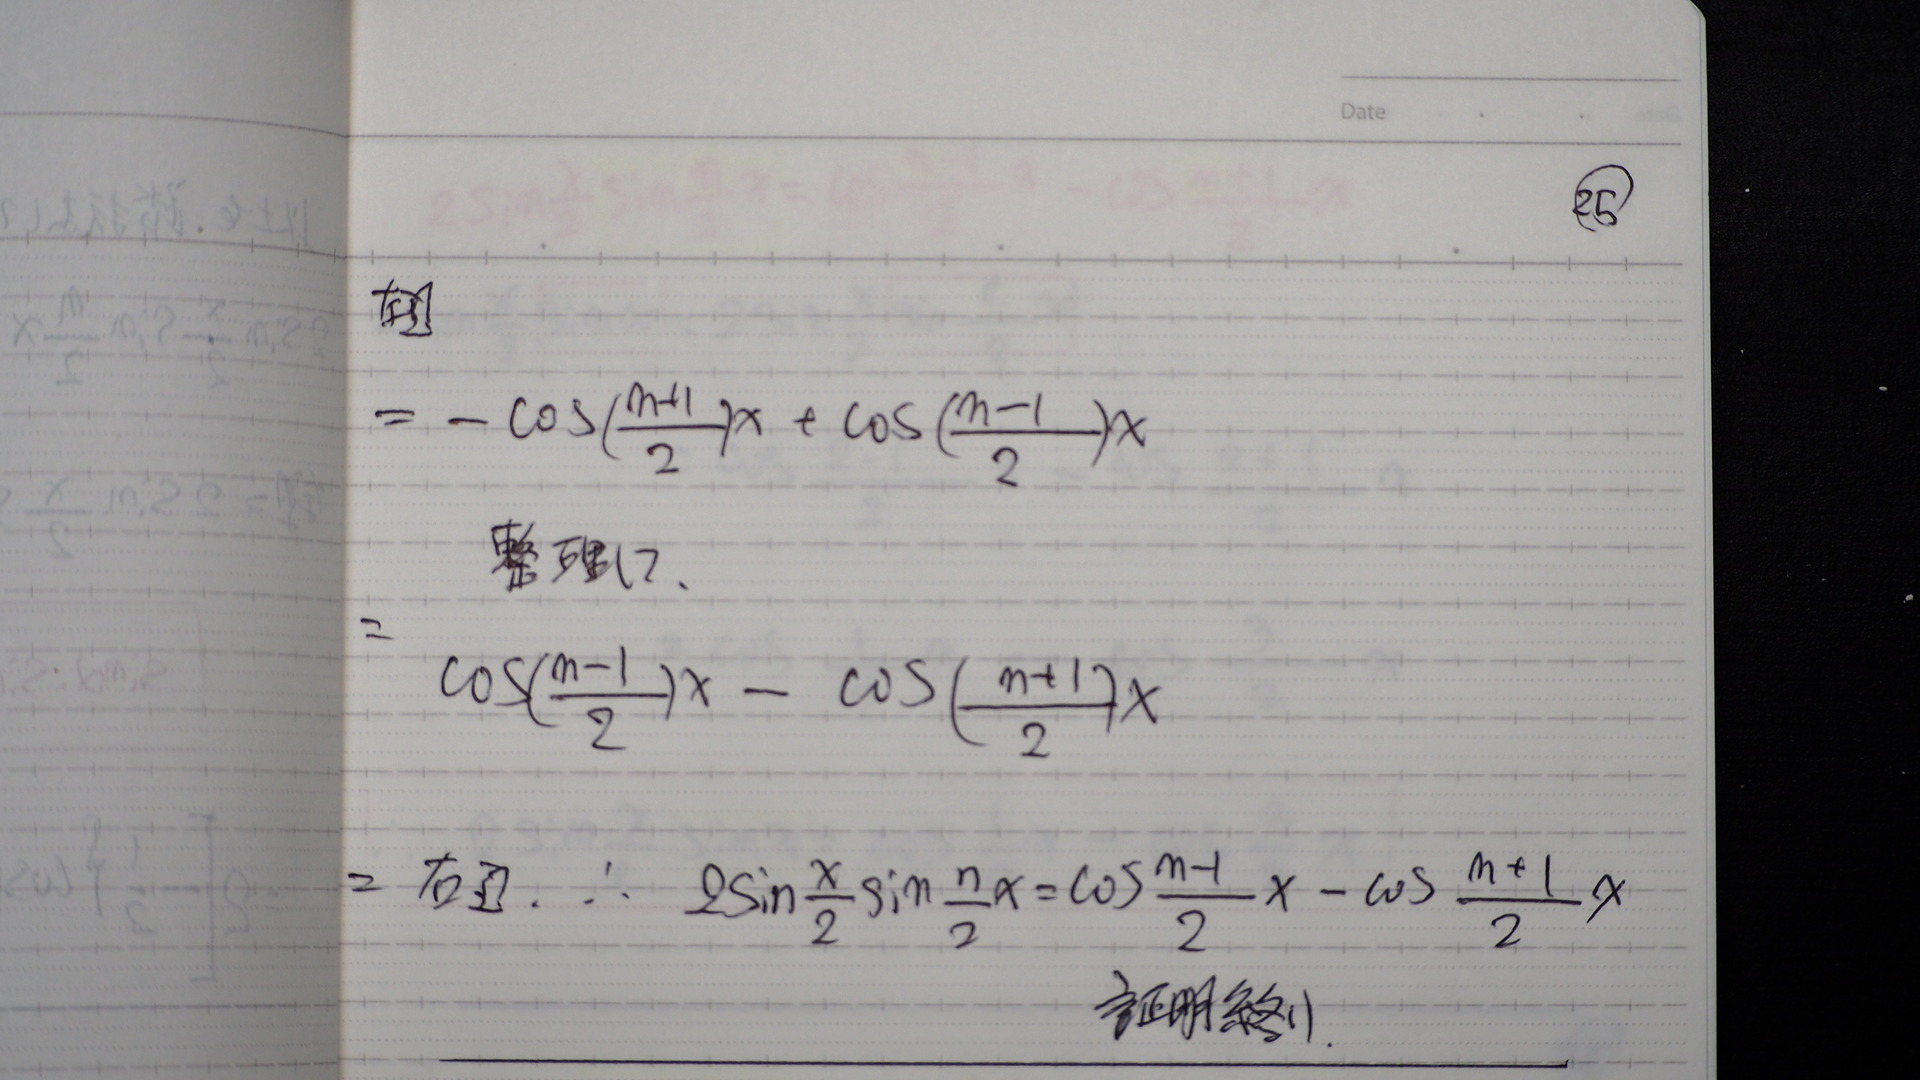 Date
25
= - cos(n+1/2)x + cos(n-1/2)x
整理して、
=
cos(n-1/2)x - cos(n+1/2)x
= 右辺. ∴ 2sin x/2 sin n/2 x = cos n-1/2 x - cos n+1/2 x
証明終り.